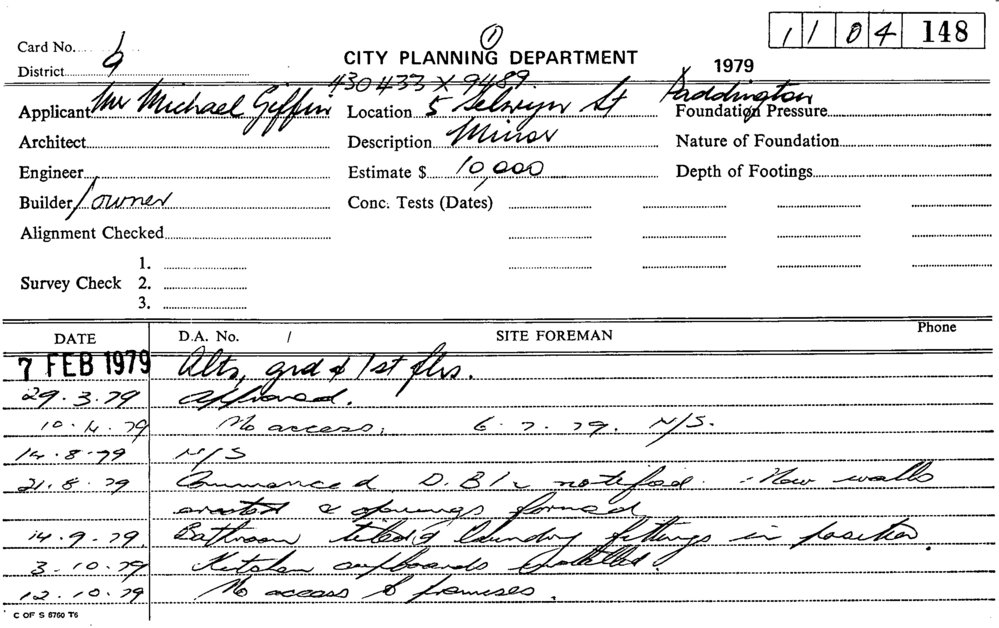 1
11 04 148
Card No. 1
CITY PLANNING DEPARTMENT
District 9
1979
430433 X 9489
Applicant Mr Michael Giffin Location 5 Selwyn St Paddington Foundation Pressure
Architect Description Minor Nature of Foundation
Engineer Estimate $ 10,000 Depth of Footings
Builder / owner Conc. Tests (Dates)
Alignment Checked
1.
Survey Check 2.
3.
DATE D.A. No. / SITE FOREMAN Phone
7 FEB 1979 Alts, grd & 1st flrs.
29.3.79 Approved.
10.4.79 No access. 6.7.79. N/S.
14.8.79 N/S
21.8.79 Commenced notified. New walls
erected & openings formed
14.9.79 Bathroom tiled & laundry fittings in position.
3.10.79 Kitchen cupboards installed.
12.10.79 No access to premises.
C OF S 6760 T6